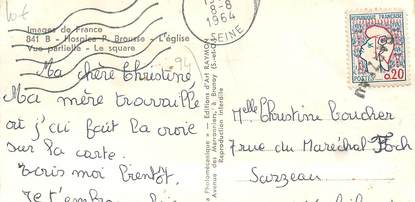 10€
Images de France
841 B - Hospice P. Brousse - L'église
Vue partielle - Le square
94
8-8
1964
SEINE
REPUBLIQUE FRANCAISE
POSTES
0,20
Ma chère Christine,
Ma mère travaille
où j'ai fait la croix
sur la carte.
Ecris moi bientôt.
Je t'embrasse
Photomécanique" - Editions d'Art RAYMON
Avenue des Marronniers, à Brunoy (S.-et-O.)
Reproduction interdite
Melle Christine Coucher
7 rue du Maréchal Foch
Sarzeau